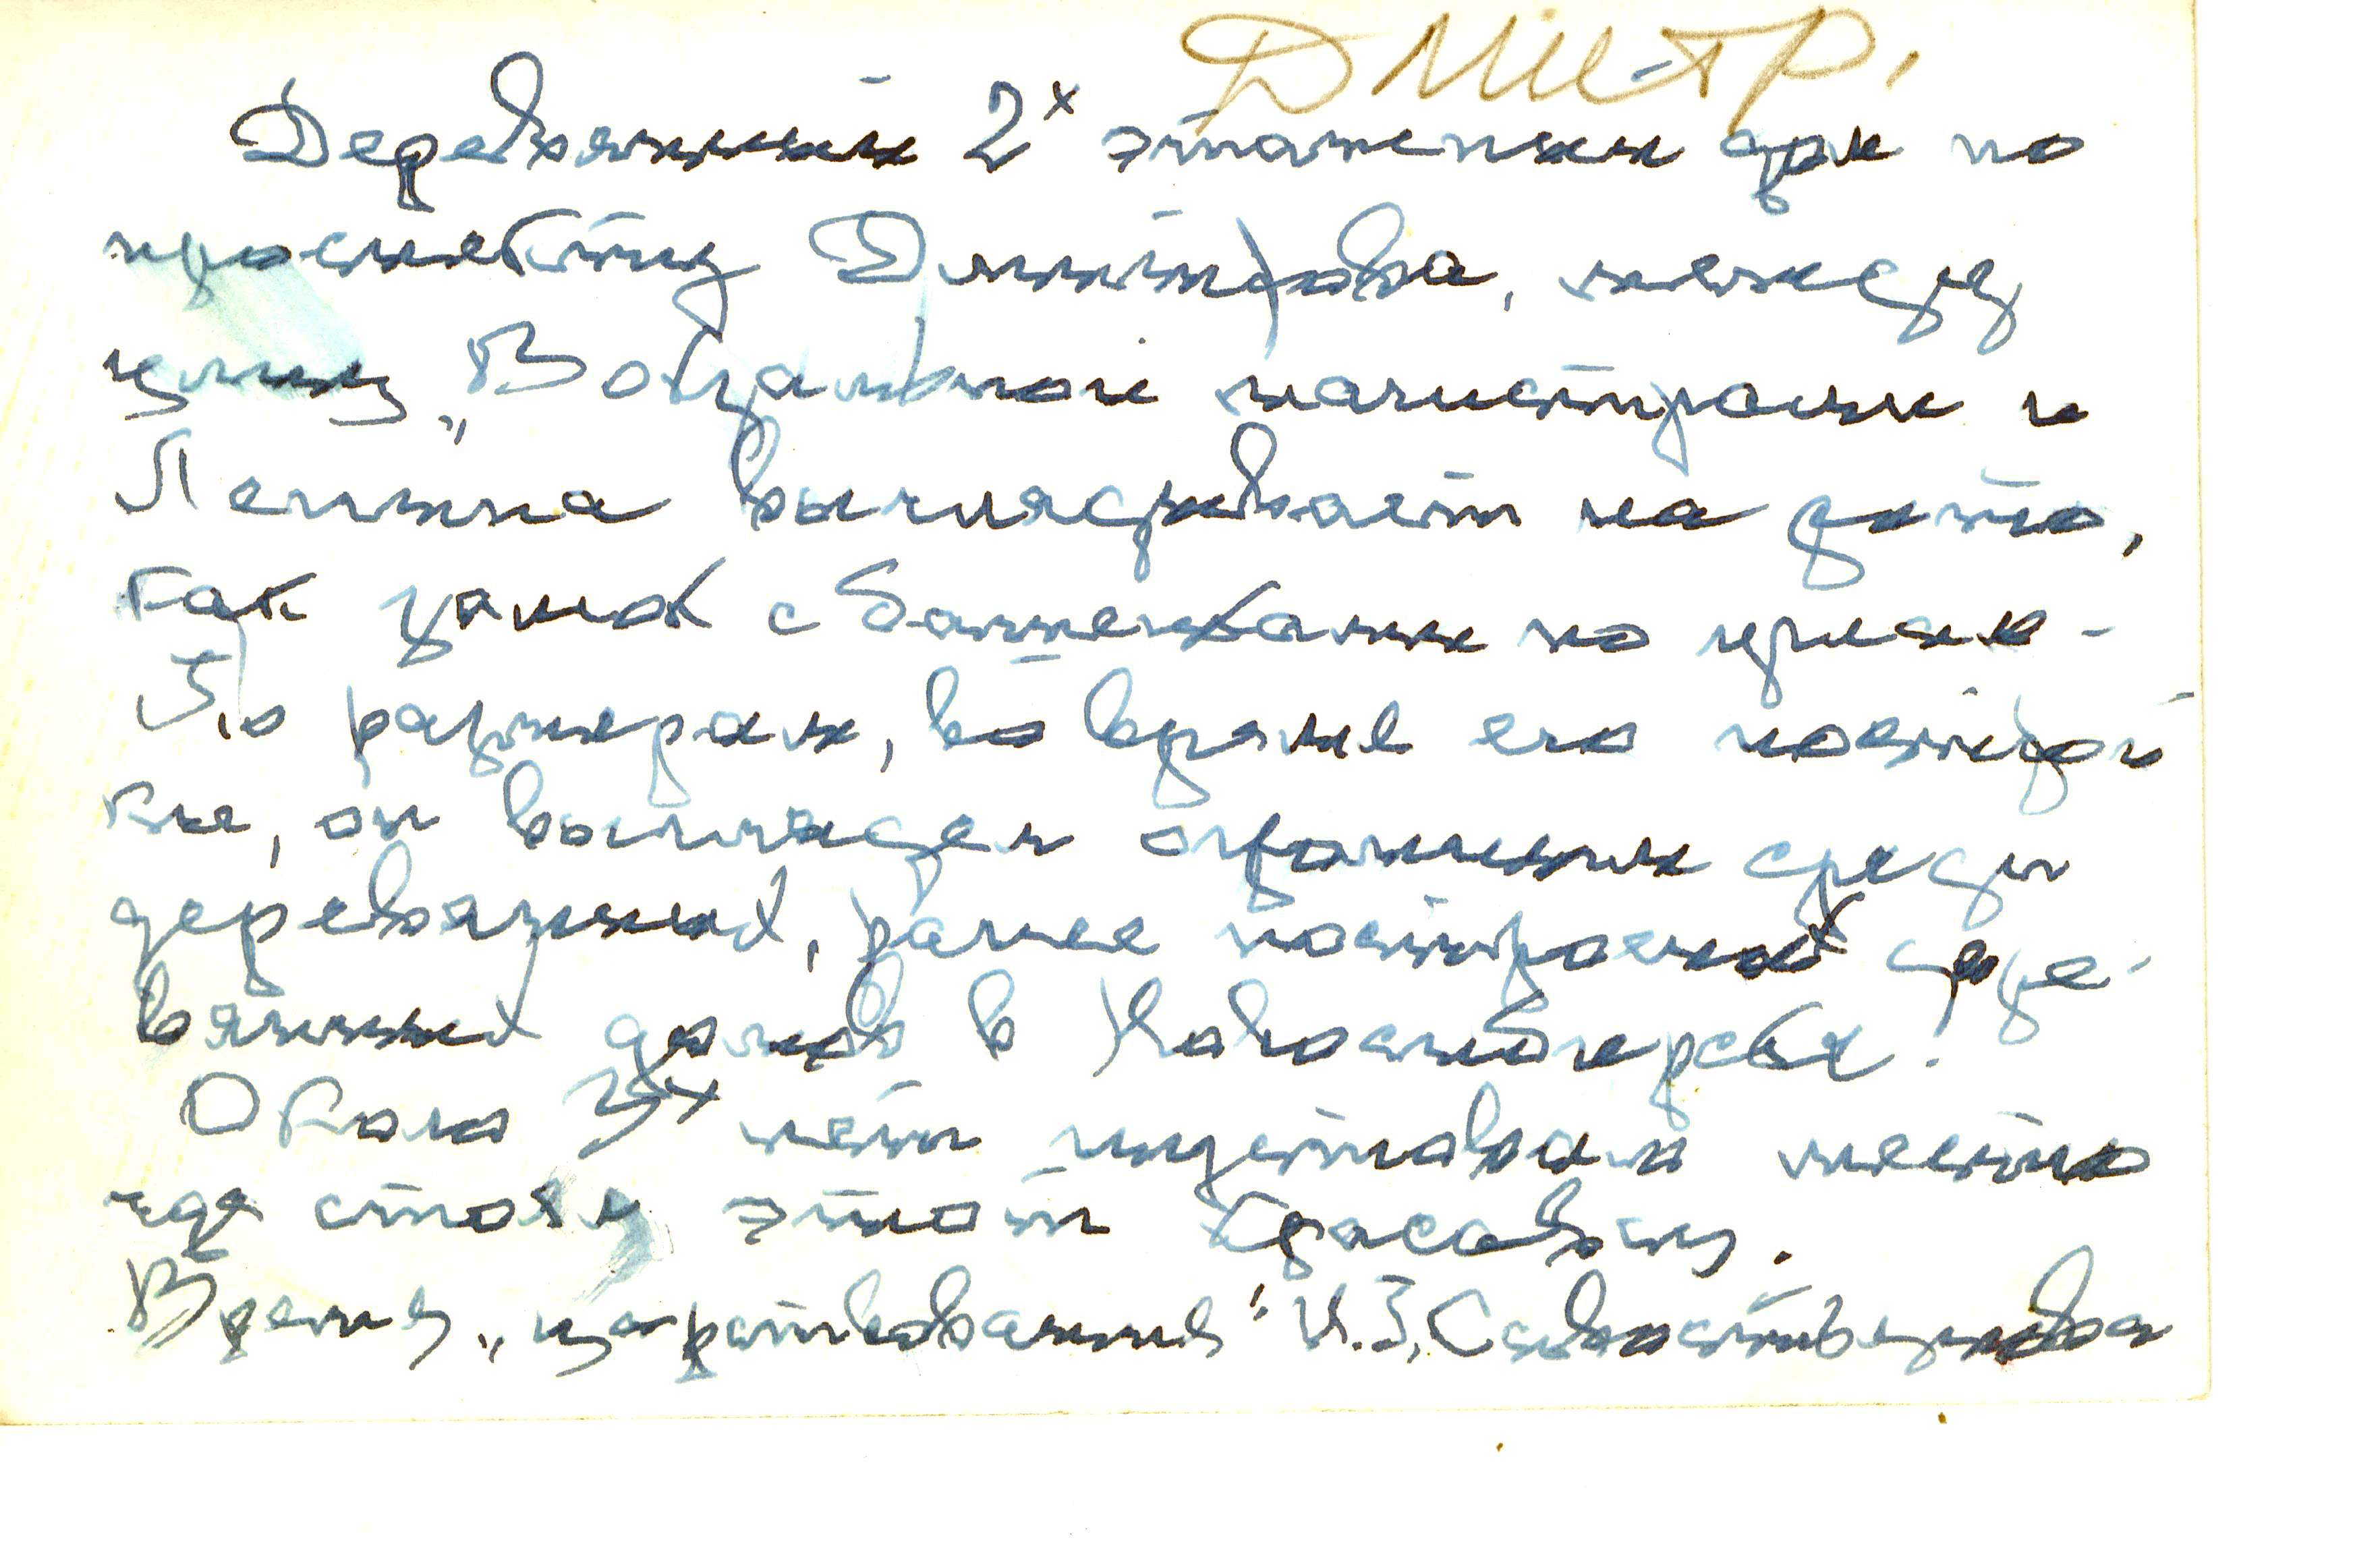 ДМИТР.
Деревянный 2х этажный дом по
проспекту Димитрова, между
улиц „Вокзальной магистрали и
Ленина выглядывает на фото,
как замок с башенками по краям -
По размерам, во время его построй
ке, он выглядел огромным среди
деревянных, ранее построеных дере-
вянных домов в Новосибирске!
Около 3х лет пустовало место
где стоял этот красавец.
Время „царствования" И.З. Севастьянова